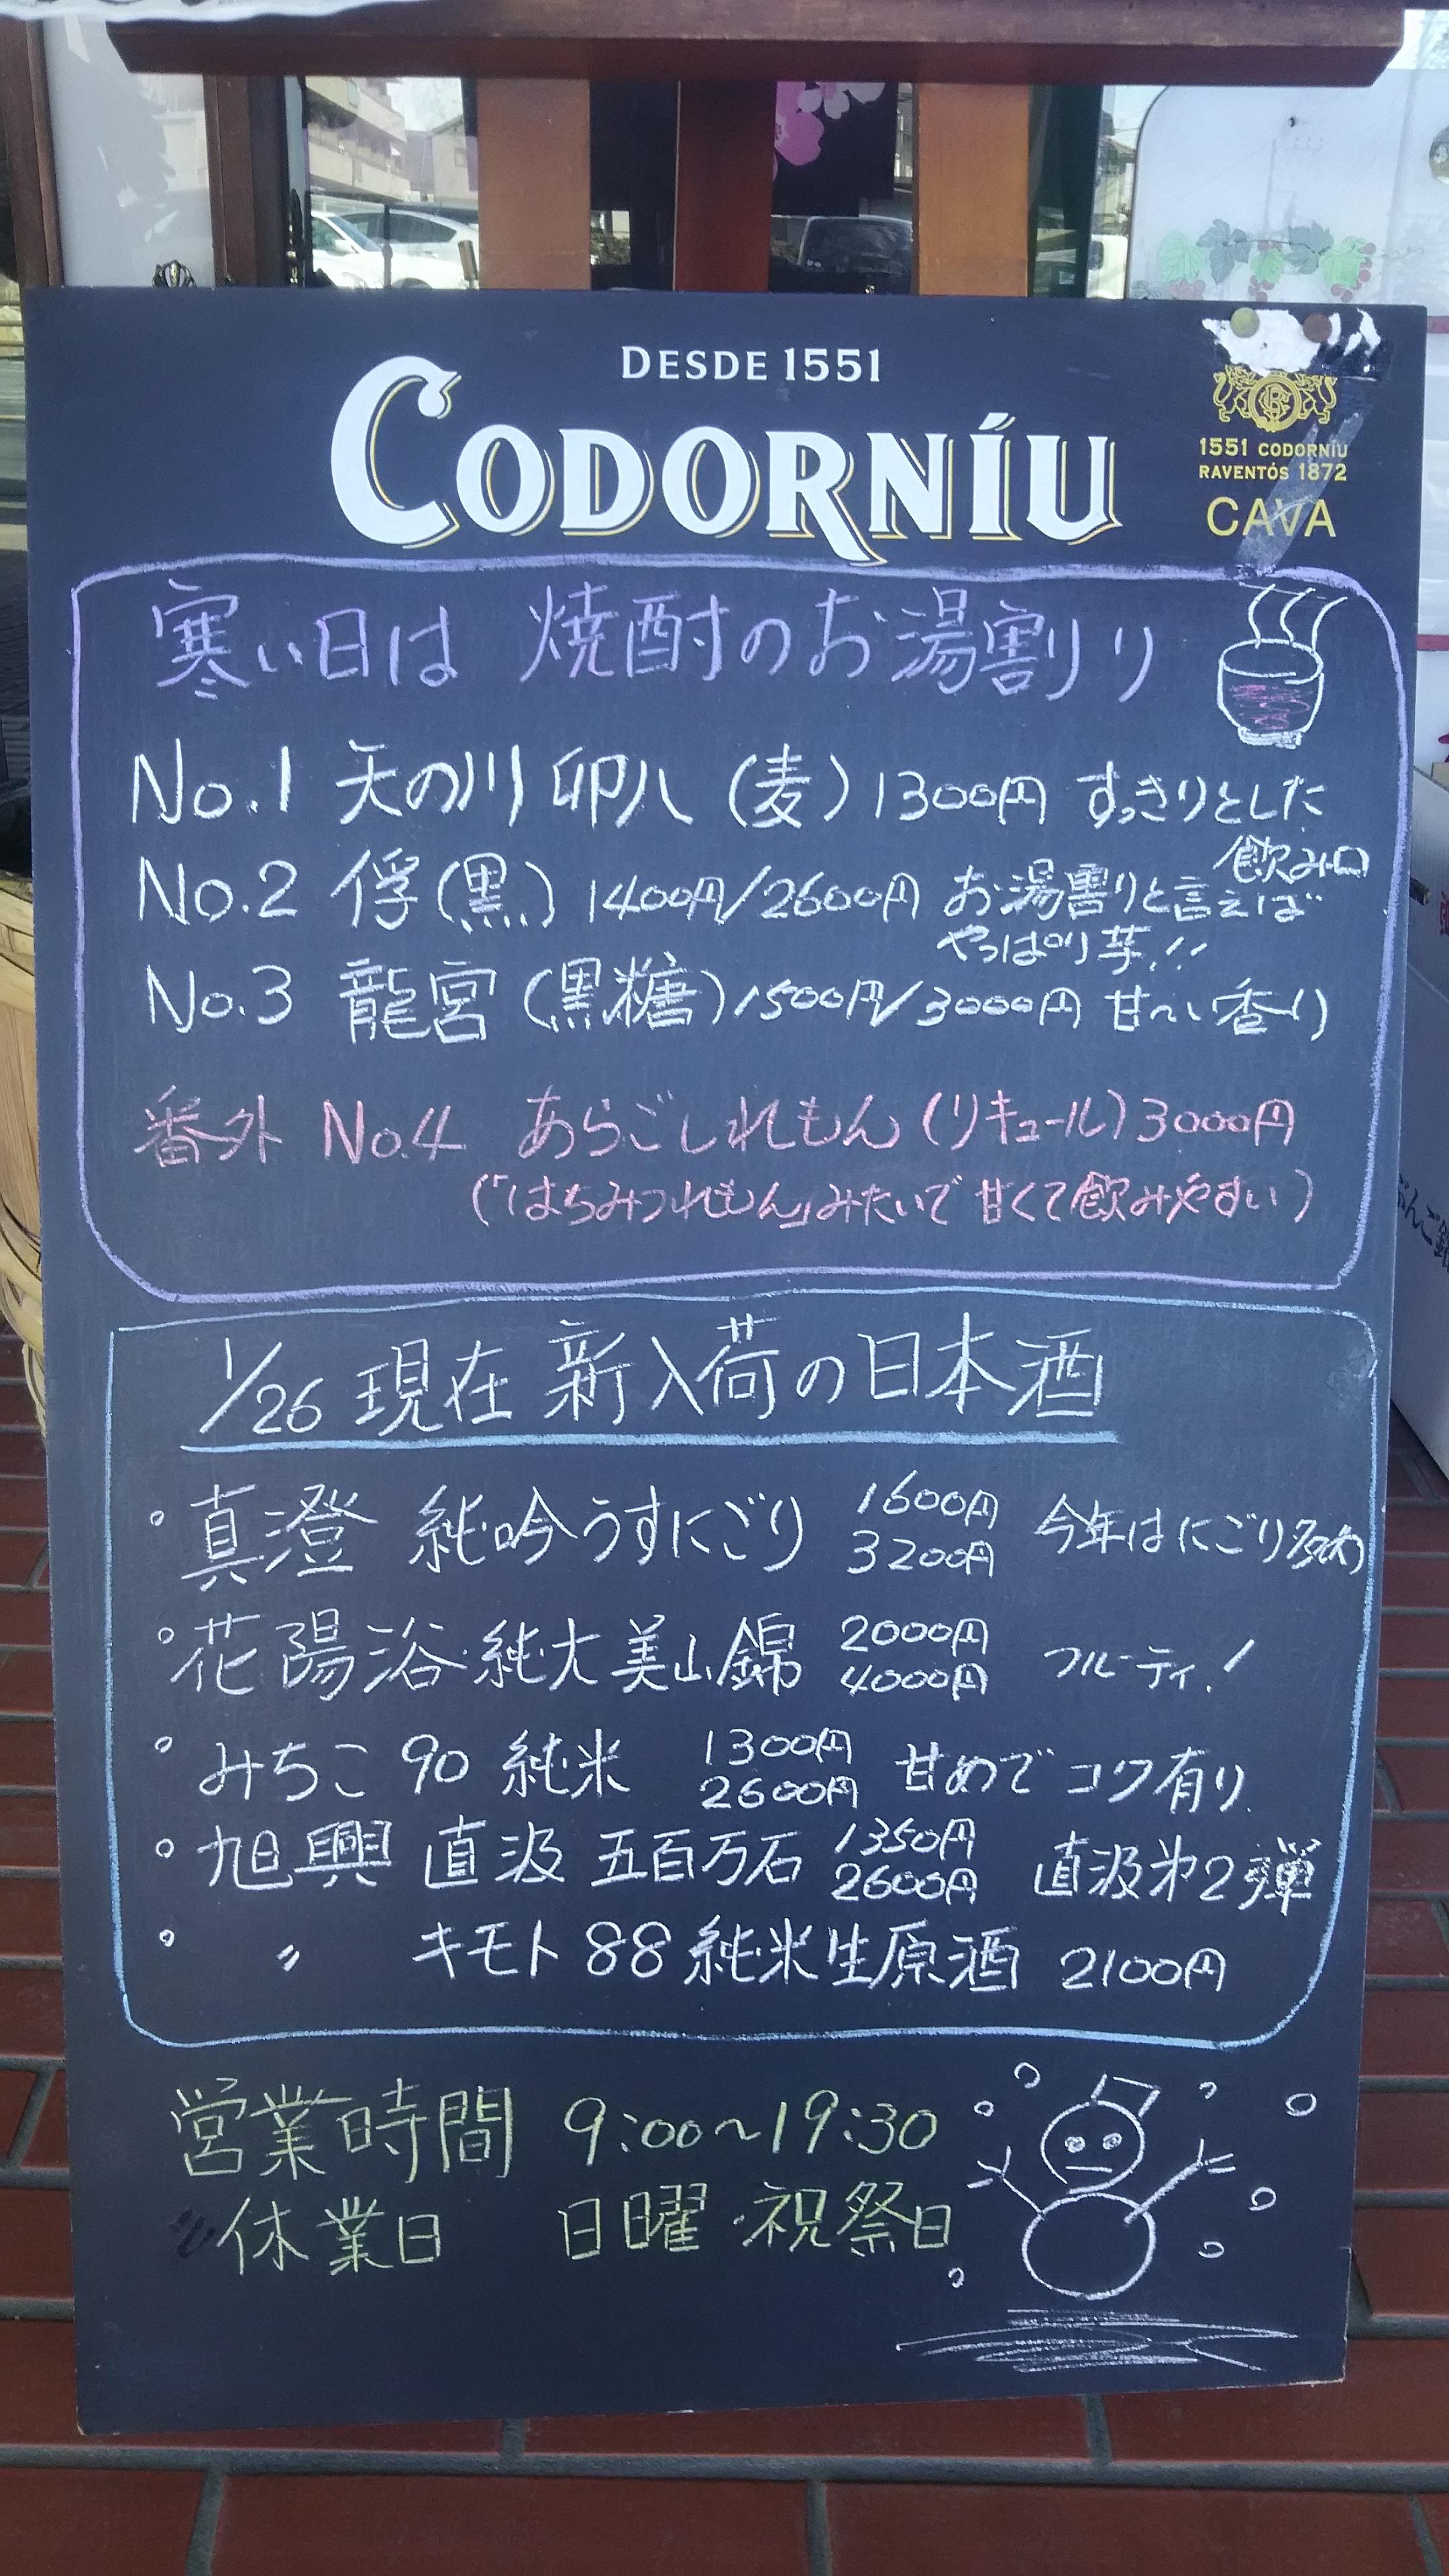 DESDE 1551
CODORNÍU
1551 CODORNÍU
RAVENTÓS 1872
CAVA
寒い日は 焼酎のお湯割り
No.1 天の川 卯八 (麦) 1300円 すっきりとした
飲み口
No.2 俘(黒) 1400円/2600円 お湯割りと言えば
やっぱり芋!!
No.3 龍宮 (黒糖) 1500円/3000円 甘〜い香り
番外 No.4 あらごしれもん(リキュール)3000円
(「はちみつれもん」みたいで 甘くて飲みやすい)
1/26 現在 新入荷の日本酒
・真澄 純吟うすにごり 1600円 3200円 今年はにごり多め
・花陽浴 純大美山錦 2000円 4000円 フルーティ!
・みちこ 90 純米 1300円 2600円 甘めでコク有り
・旭興 直汲 五百万石 1350円 2600円 直汲第2弾
・〃 キモト 88 純米生原酒 2100円
営業時間 9:00~19:30
休業日 日曜・祝祭日